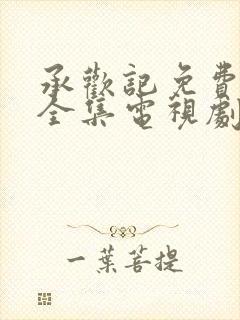 承歡記免費
全集電視劇
一葉菩提